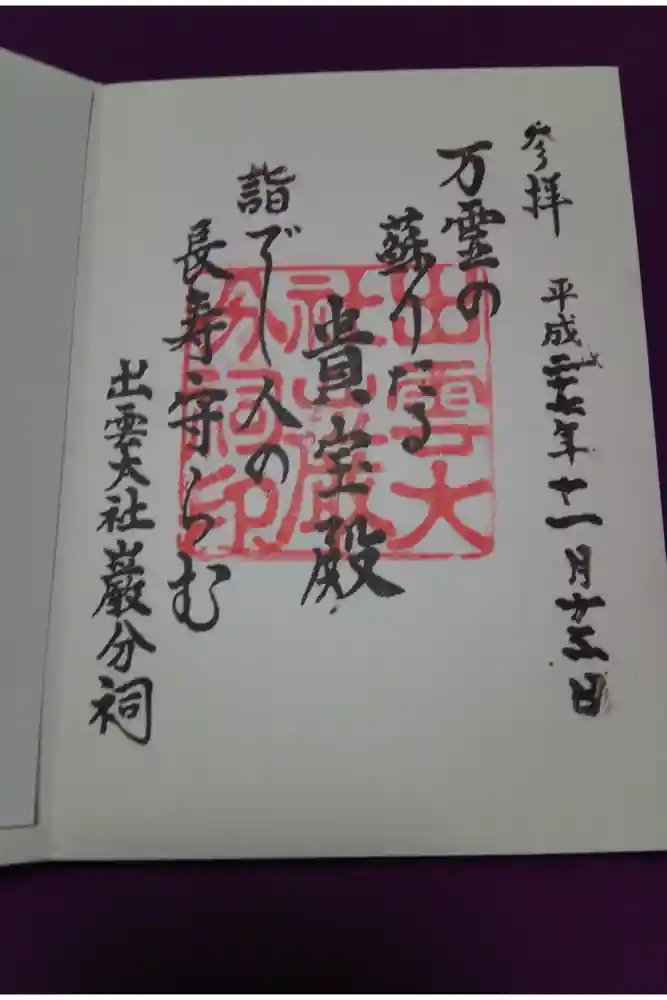 参拝 平成二十七年十一月廿三日
万霊の
蘇りたる
貴宝殿
詣でし人の
長寿守らむ
出雲大社巌分祠
出雲大
社巌
分祠印